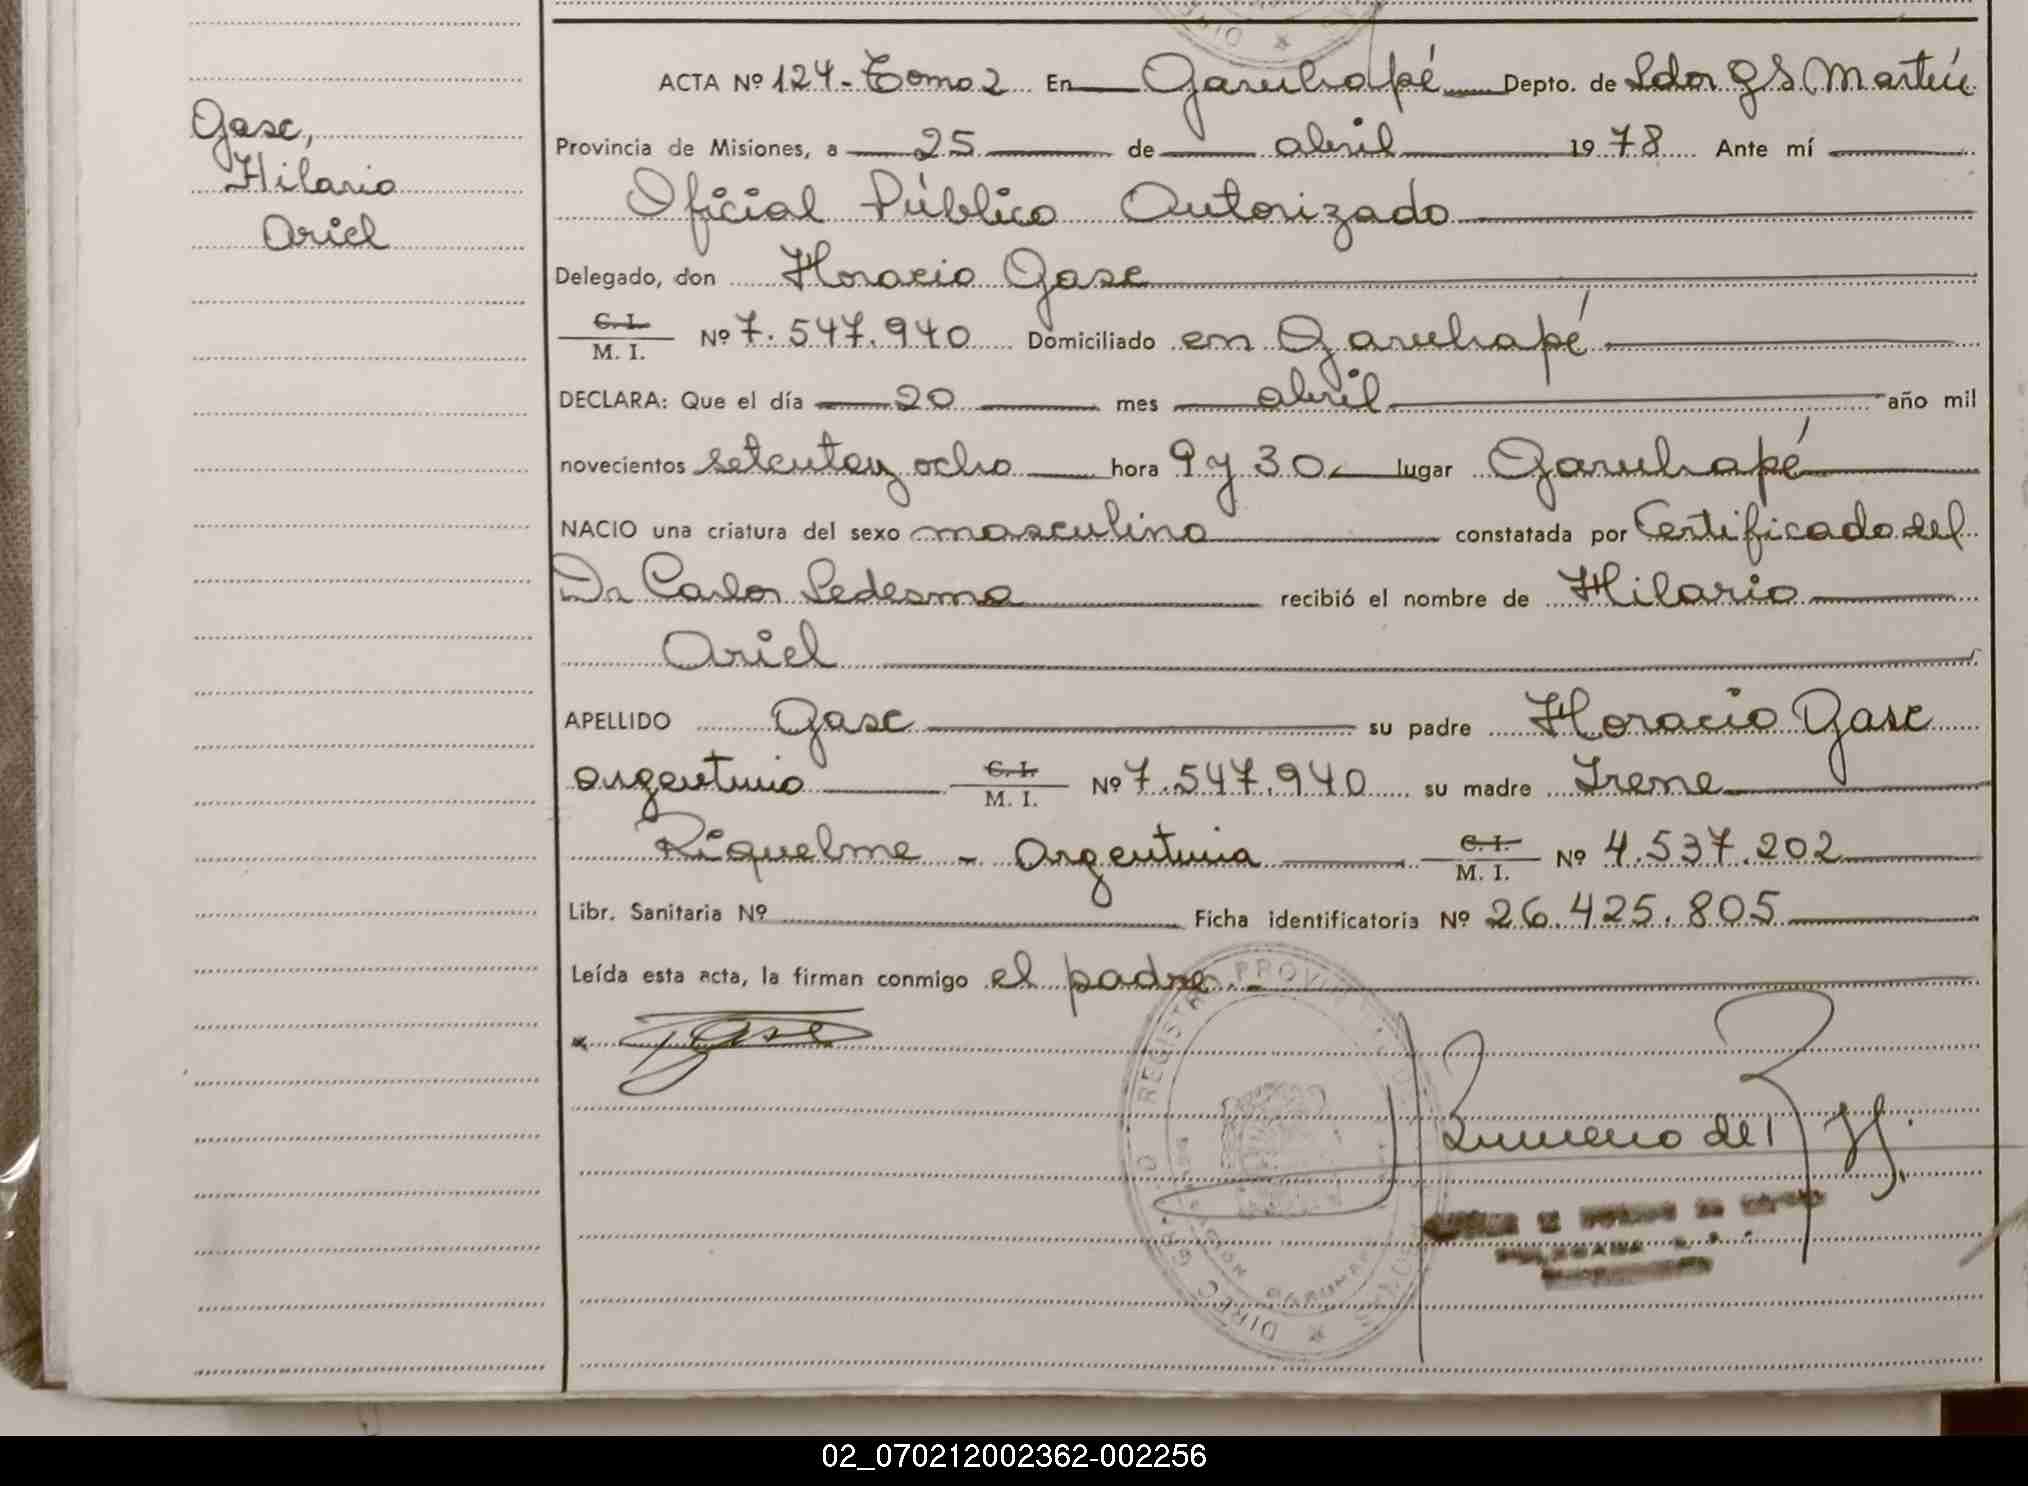 ACTA Nº 124 - Tomo 2 En Garuhapé Depto. de Ldor G S Martín
Gasc,
Provincia de Misiones, a 25 de abril 1978 Ante mí
Hilario
Oficial Público Autorizado
Ariel
Delegado, don Horacio Gasc
C. I.
M. I. Nº 7.547.940 Domiciliado en Garuhapé
DECLARA: Que el día 20 mes abril año mil
novecientos setenta y ocho hora 9 y 30 lugar Garuhapé
NACIO una criatura del sexo masculino constatada por Certificado del
Dr Carlos Ledesma recibió el nombre de Hilario
Ariel
APELLIDO Gasc su padre Horacio Gasc
argentino C. I. M. I. Nº 7.547.940 su madre Irene
Riquelme - Argentina C. I. M. I. Nº 4.537.202
Libr. Sanitaria Nº Ficha identificatoria Nº 26.425.805
Leída esta acta, la firman conmigo el padre.-
Gasc
02_070212002362-002256